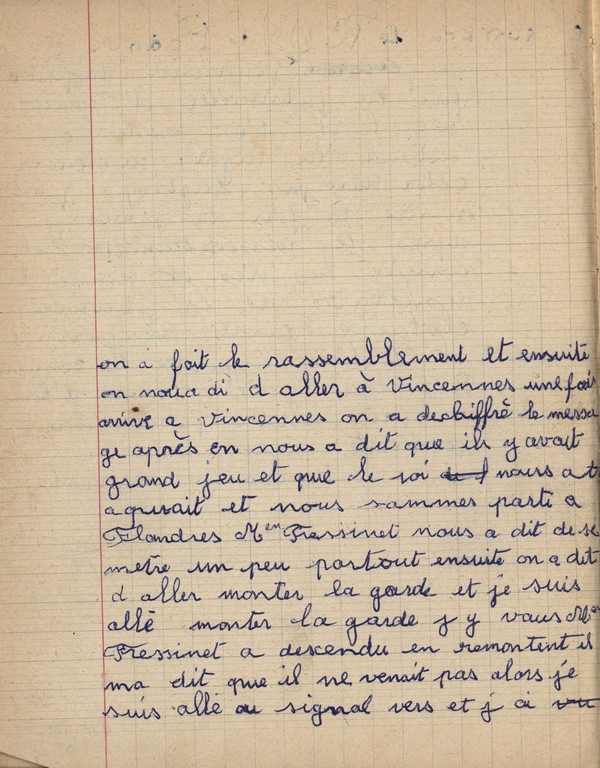 on a fait le rassemblement et ensuite
on noua di d aller à Vincennes une fois
arrive a Vincennes on a dechiffrè le messa
ge après on nous a dit que ils y avait
grand jeu et que le roi nous a t
aquvait et nous sammes parti a
Flandres Mem Fressinet nous a dit de se
metre un peu partout ensuite on a dit
d aller monter la garde et je suis
allé monter la garde j y vaus Mem
Fressinet a descendu en remontent il
ma dit que il ne venait pas alors je
suis allé au signal vers et j ai vu